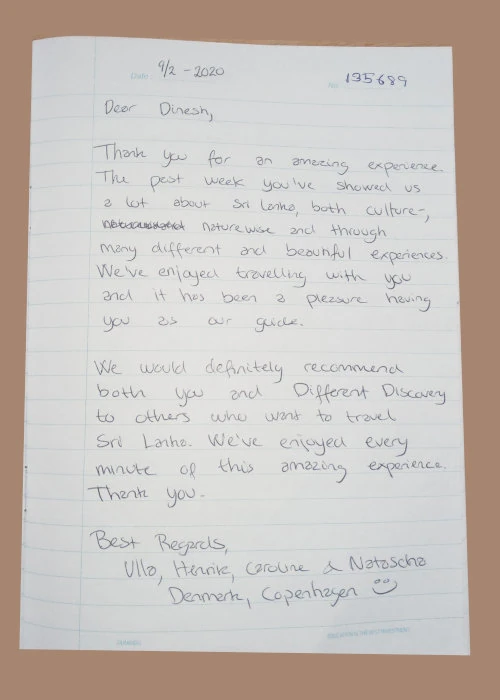 Date: 9/2 - 2020
No: 135689
Dear Dinesh,
Thank you for an amazing experience.
The past week you've showed us
a lot about Sri Lanka, both culture-,
naturewise and through
many different and beautiful experiences.
We've enjoyed travelling with you
and it has been a pleasure having
you as our guide.
We would definitely recommend
both you and Different Discovery
to others who want to travel
Sri Lanka. We've enjoyed every
minute of this amazing experience.
Thank you.
Best Regards,
Ulla, Henrik, Caroline & Natascha
Denmark, Copenhagen